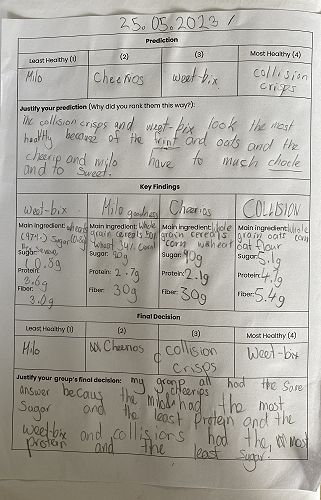 25.05.2023
Prediction
Least Healthy (1) (2) (3) Most Healthy (4)
Milo Cheerios weet-bix collision crisps
Justify your prediction (Why did you rank them this way?):
The collision crisps and weet-bix look the most
healthy because of the and oats and the
cheerip and milo have to much chock
and to sweet.
Key Findings
weet-bix Milo Cheerios COLLISION
Main ingredient: wheat (97%) Main ingredient: whole grain cereals Main ingredient: whole grain cereals corn wheat Main ingredient: whole grain oats corn oat flour
Sugar: Sugar: Sugar: Sugar: 5.1g
Protein: Protein: 2.7g Protein: 2.1g Protein:
Fiber: 3.0g Fiber: 30g Fiber: 30g Fiber: 5.4g
Final Decision
Least Healthy (1) (2) (3) Most Healthy (4)
Milo Cheerios collision crisps Weet-bix
Justify your group's final decision: my group all had the same
answer becaus the milo had the most
cheerios
sugar and the least protein and the
weet-bix and collisions had the most
protein and the least sugar.